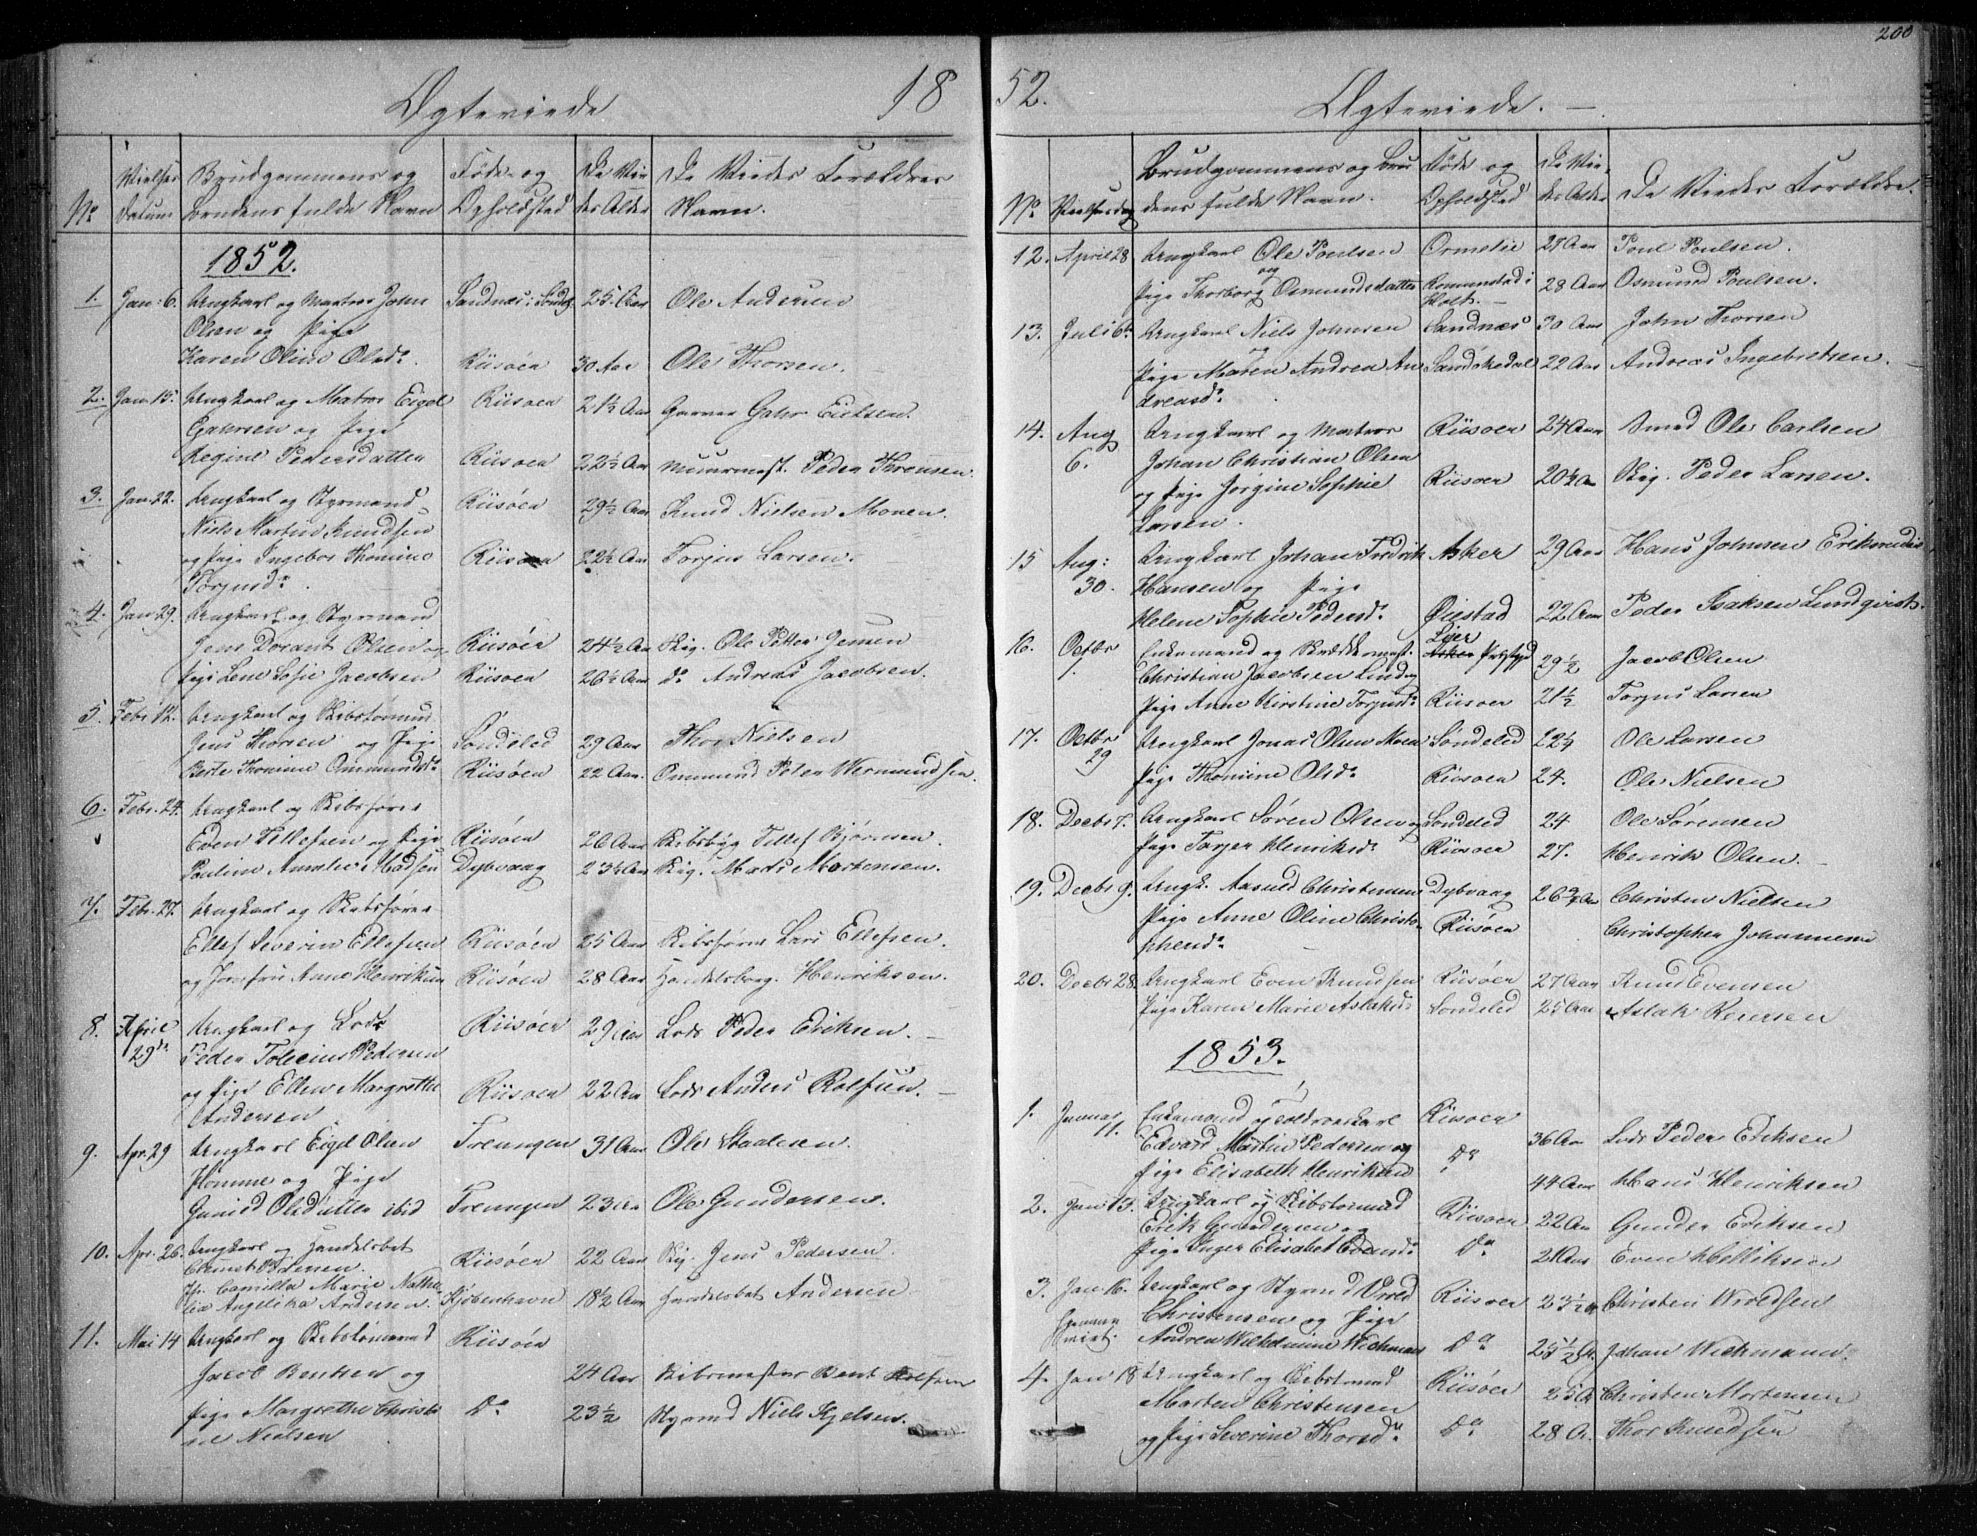 18
Ægteviede
No
Vielses Datum
Brudgommens og
Brudens fulde Navn
Føde- og
Opholdsted
De Vie
des Alder
De Viedes Forældres
Navn.
1852.
1. Jan: 6. Ungkarl og Matros John Sandnæs i Sønd. 25 Aar Ole Andersen
Olsen og Pige
Karen Oline Olsd. Riisøer 30 Aar Ole Thorsen.
2. Jan. 15. Ungkarl og Matros Eigel Riisøer 21½ Aar Garver Gahr Eielsen.
Gahrsen og Pige
Regine Pedersdatter Riisøer 22½ Aar Muurmest. Peder
3. Jan. 22. Ungkarl og Styrmand Riisøer 29½ Aar Knud Nielsen Moven.
Niels Martin Knudsen
og Pige Ingebor Thomine Riisøer 22½ Aar Torjus Larsen.
Torjusd.
4. Jan. 29. Ungkarl og Styrmand
Jens Dorant Olsen og Riisøer 24½ Aar Skig. Ole Petter Jensen
Pige Lene Sofie Jacobsen Riisøer 26½ Aar do Andreas Jacobsen.
5. Febr. 12. Ungkarl og Skibstømmer
Jens Thorsen og Pige Søndeled 29 Aar Thor Nielsen
Berte Thomine Ommundsd. Riisøer 22 Aar. Ommund Peter Wermundsen.
6. Febr. 24. Ungkarl og Skibsfører
Even Tellefsen og Pige Riisøer 26 Aar Skibsbyg Tellef Bjørnsen.
Pauline Amalie Madsen Dybvaag 23½ Aar Skig. Mads Mortensen.
7. Febr. 27. Ungkarl og Skibsfører
Ellef Severin Ellefsen Riisøer 25 Aar Skibsfører Lars Ellefsen.
og Jomfru Anne Henriksen Riisøer 28 Aar Handelsborg. Henriksen.
8. April 29de Ungkarl og Lods Riisøer 29 Aar Lods Peder Eriksen.
Peder Pedersen
og Pige Ellen Margrethe Riisøer 22 Aar Lods Anders Rolfsen.
Andersen
9. Apr. 29 Ungkarl Eigel Olsen Treungen 31 Aar Ole Staalesen.
Homme og Pige
Gunild Olsdatter ibid Treungen 23 Aar Ole Gundersen.
10. Apr. 26. Ungkarl og Handelsbet Riisøer 22 Aar Skig. Jens Pedersen.
Pedersen.
Jfr. Camilla Marie Natha-
lia Angelika Andersen. Kjøbenhavn 18½ Aar Handelsbet Andersen
11. Mai 14 Ungkarl og Skibstømmermd Riisøer
Jacob Bentsen og 24 Aar Skibsmester Bent
Pige Margrethe Christi- Do 23½ Styrmd Niels Kjelsen.
ne Nielsen
52.
200
Ægteviede.
No
Vielsesdag
Brudgommens og Bru
dens fulde Navn.
Føde og
Opholdsted
De Vie-
des Alder
De Viedes Forældre.
12. April 28 Ungkarl Ole Poulsen Ormelie 27 Aar Poul Poulsen.
og
Pige Thorborg Osmundsdatter Romunstad i Holt. 28 Aar Osmund Poulsen.
13. Juli 6te Ungkarl Niels Johnsen Sandnæs 30 Aar John Thorsen
Pige Maren Andrea An Sandøkedal 22 Aar Andreas Ingebretsen.
dreasd.
14. Aug 6. Ungkarl og Matros Riisøer 24 Aar Smed Ole Carlsen
Johan Christian Olsen
og Pige Jørgine Sophie Riisøer 20½ Aar Skig. Peder Larsen.
Larsen.
15 Aug: 30. Ungkarl Johan Fredrik Asker 29 Aar Hans Johnsen
Hansen og Pige
Helene Sophie Pedersd. Øiestad 22 Aar Peder Isaksen Lundqvist.
16. Octbr 1. Enkemand og Skræddermest. Lier 29½ Jacob Olsen
Christian Jacobsen Lind og
Pige Anne Kirstine Torjusd. Riisøer 21½ Torjus Larsen
17. Octbr 29 Ungkarl Jonas Olsen Moen Søndeled 22½ Ole Larsen
Pige Thomine Olsd. Riisøer 24. Ole Nielsen
18. Decbr 7. Ungkarl Søren Olsen og Søndeled 24 Ole Sørensen
Pige Torjer Henriksd. Riisøer 27. Henrik Olsen.
19. Decbr 9. Ungk. Aasuld Christensen Dybvaag 26¾ Aar Christen Nielsen
Pige Anne Oline Christo- Riisøer Christopher Johannesen
phersd.
20. Decbr 28. Ungkarl Even Knudsen Riisøer 27 Aar Knud Evensen
Pige Karen Marie Aslaksd. Søndeled 25 Aar Aslak Reiersen
1853.
1. Januar 11. Enkemand og Riisøer
Edvard Martin Pedersen og 36 Aar Lods Peder Eriksen
Pige Elisabeth Henriksen Do 44 Aar Hans Henriksen
2. Jan 13. Ungkarl og Skibstømmd Riisøer 22 Aar Gunder Eriksen
Erik Gundersen og
Pige Inger Elisabet Evensd. Do 21 Aar Even
3. Jan 16. Ungkarl og Styrmd Wrold Riisøer 23½ A Christen Wroldsen
Christensen og Pige
Andrea Wilhelmine Wichman Do 25½ A. Johan Wichmann.
4. Jan 18 Ungkarl og Skibstømmd Riisøer 25 A Christen Mortensen
Morten Christensen
og Pige Severine Thorsd. Do 28 A. Thor Knudsen